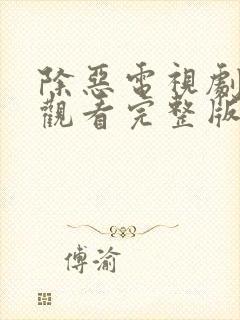 除惡電視劇
觀看完整版
傅渝